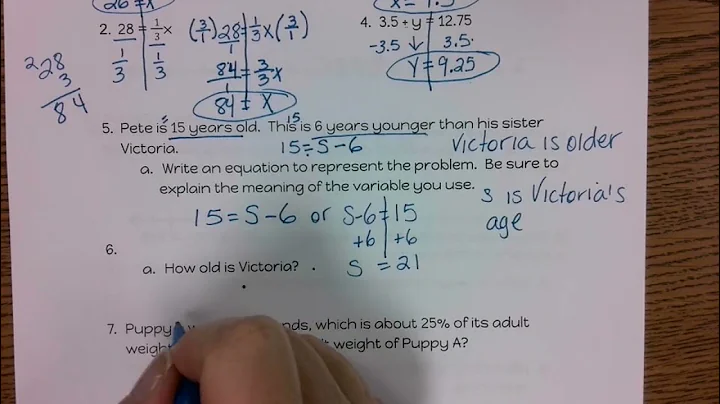 26 = x
2. 28 = 1/3 x
1/3 1/3
(3/1) 28/1 = 1/3 x (3/1)
84/1 = 3/3 x
84 = x
2
28
3
84
4. 3.5 + y = 12.75
-3.5 ↓ 3.5
y = 9.25
= 15
5. Pete is 15 years old. This is 6 years younger than his sister
Victoria. 15 = S - 6
Victoria is older
a. Write an equation to represent the problem. Be sure to
explain the meaning of the variable you use.
s is Victoria's
age
15 = S - 6 or S - 6 = 15
+6 +6
S = 21
6.
a. How old is Victoria?
7. Puppy nds, which is about 25% of its adult
weight of Puppy A?